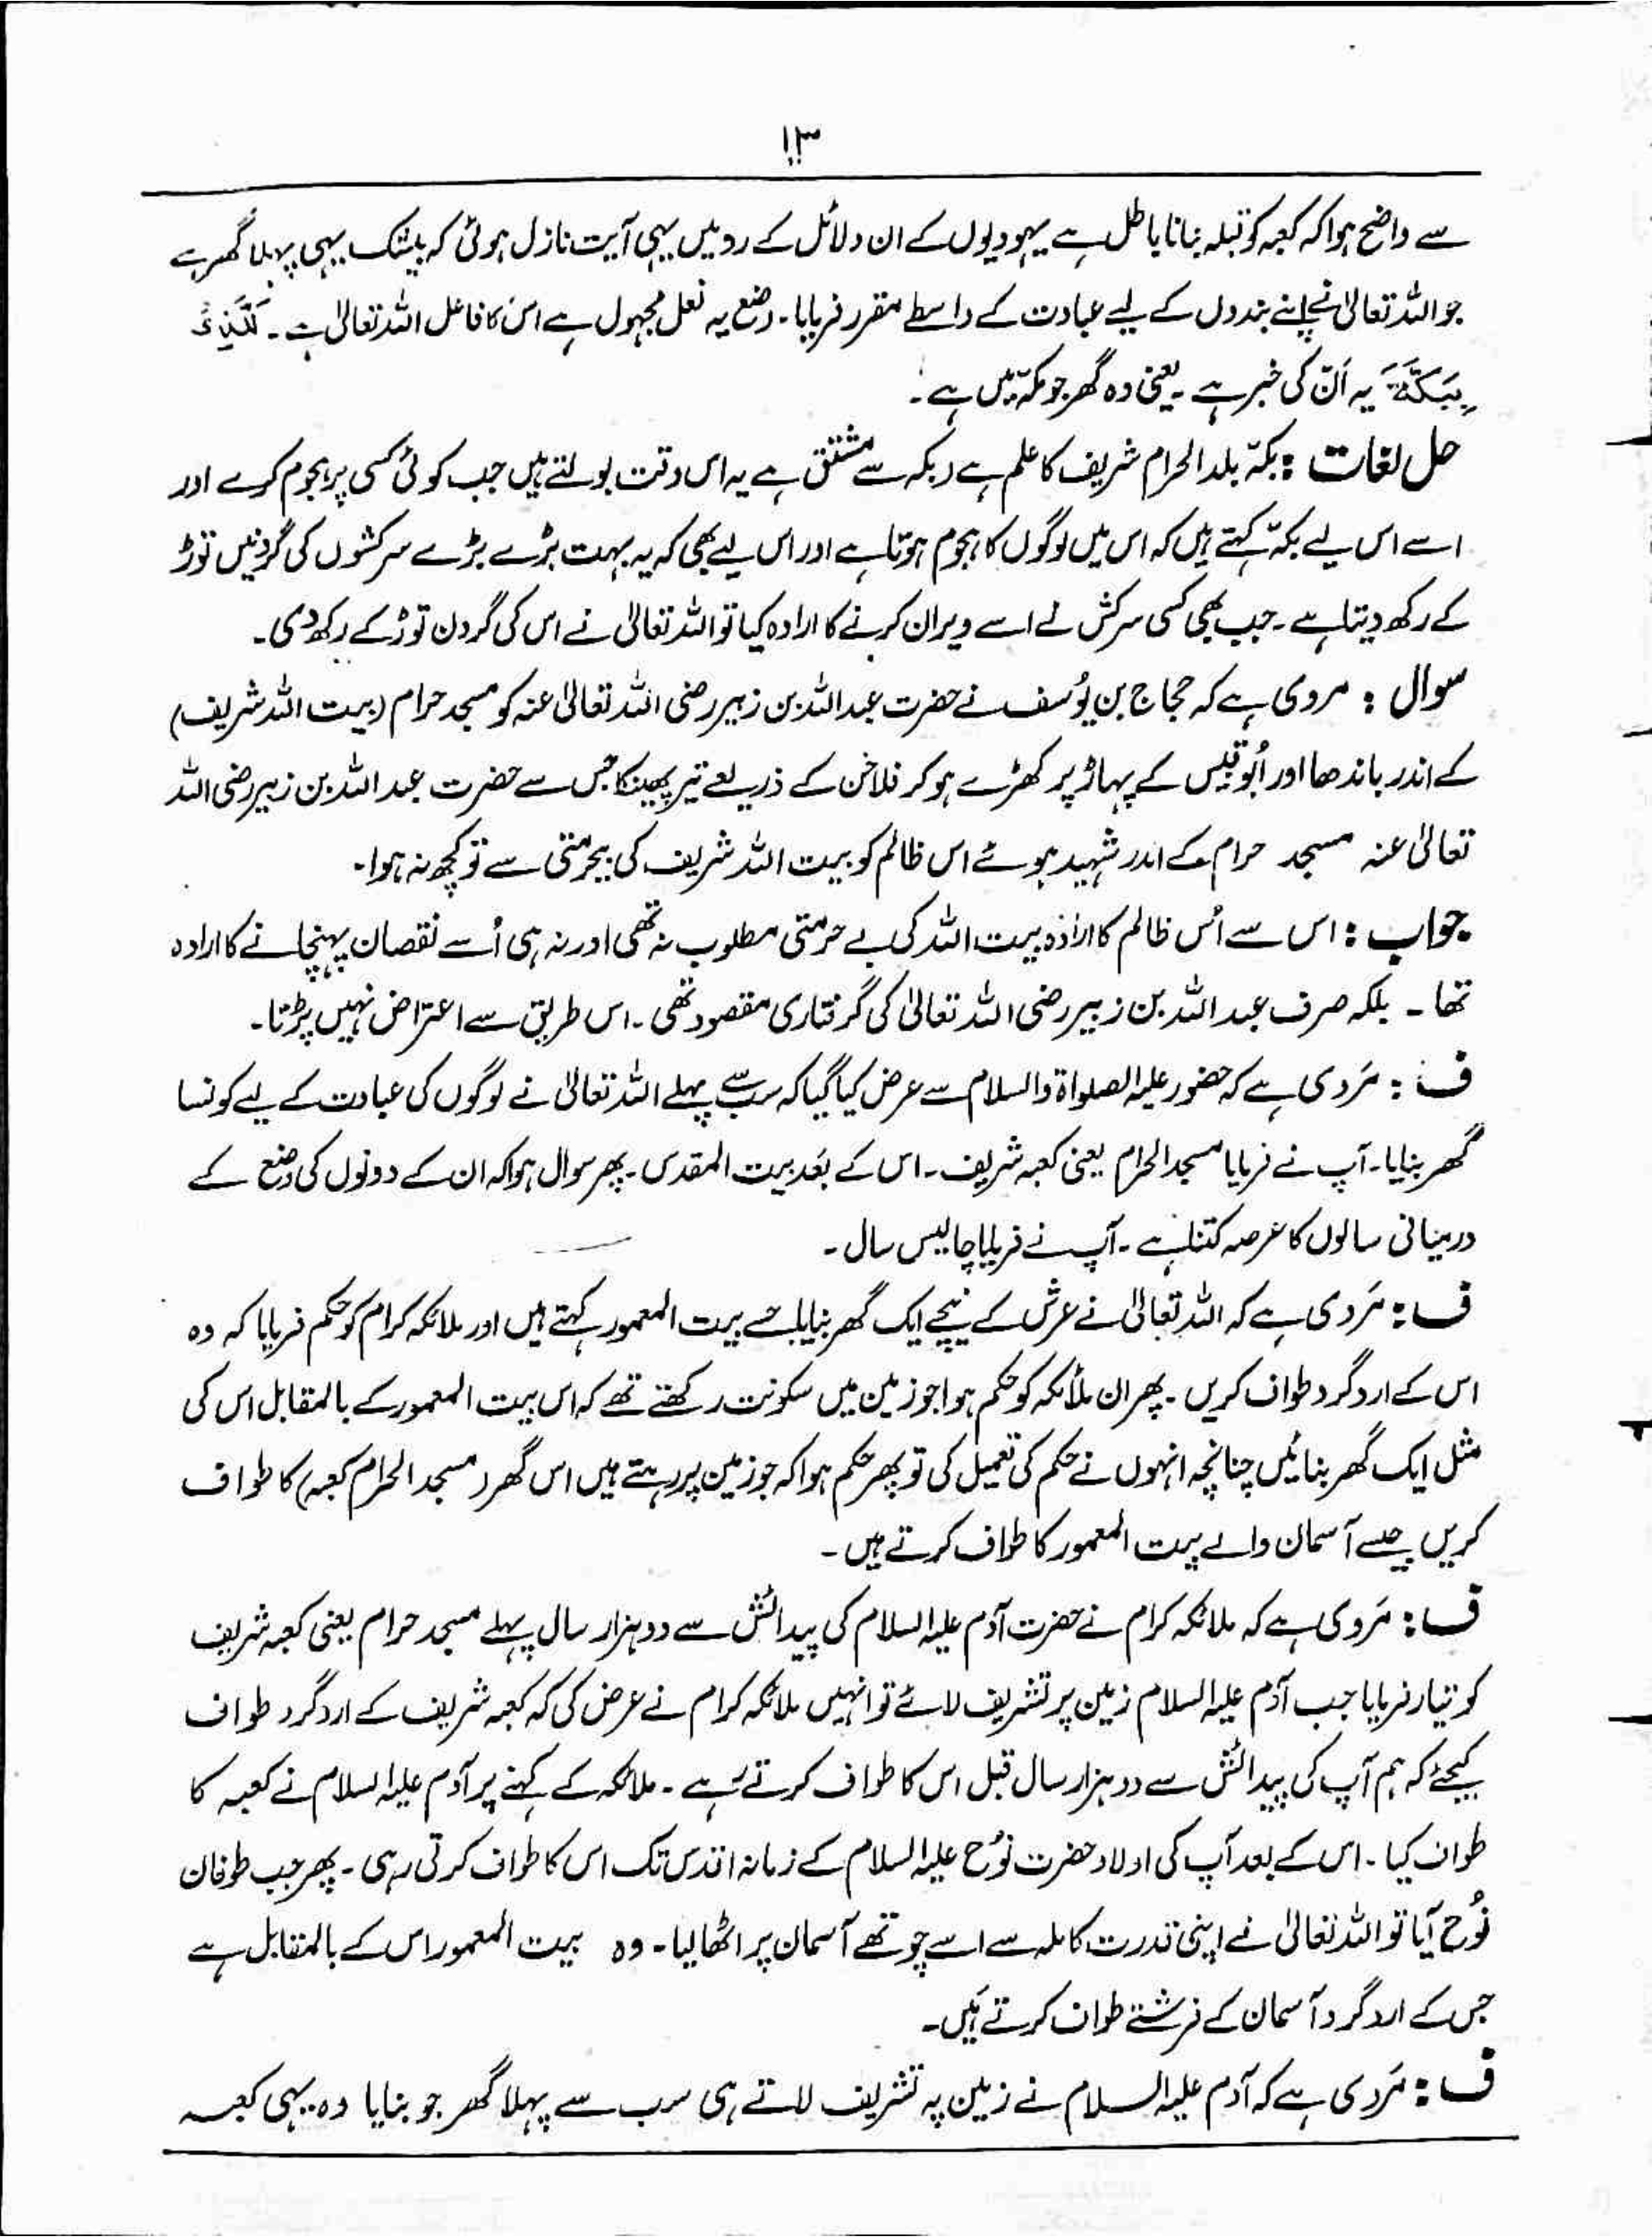 ۱۳
سے واضح ہوا کہ کعبہ کو قبلہ بنانا باطل ہے یہودیوں کے ان دلائل کے رد میں یہی آیت نازل ہوئی کہ بیشک یہی پہلا گھر ہے
جو اللہ تعالیٰ نے اپنے بندوں کے لیے عبادت کے واسطے مقرر فرمایا۔ وضع یہ فعل مجہول ہے اس کا فاعل اللہ تعالیٰ ہے۔ لَلَّذِیْ
بِبَکَّۃَ یہ اَنّ کی خبر ہے۔ یعنی وہ گھر جو مکّہ میں ہے۔
حل لغات : بکّہ بلد الحرام شریف کا علم ہے ربکہ سے مشتق ہے یہ اس وقت بولتے ہیں جب کوئی کسی پر ہجوم کرے اور
اسے اس لیے بکہّ کہتے ہیں کہ اس میں لوگوں کا ہجوم ہوتا ہے اور اس لیے بھی کہ یہ بہت بڑے بڑے سرکشوں کی گردنیں توڑ
کے رکھ دیتا ہے۔ جب بھی کسی سرکش نے اسے ویران کرنے کا ارادہ کیا تو اللہ تعالیٰ نے اس کی گردن توڑ کے رکھ دی۔
سوال : مروی ہے کہ حجاج بن یُوسف نے حضرت عبداللہ بن زبیر رضی اللہ تعالیٰ عنہ کو مسجد حرام (بیت اللہ شریف)
کے اندر باندھا اور اُبوقبیس کے پہاڑ پر کھڑے ہو کر فلاخن کے ذریعے تیر پھینکا جس سے حضرت عبد اللہ بن زبیر رضی اللہ
تعالیٰ عنہ مسجد حرام کے اندر شہید ہوئے اس ظالم کو بیت اللہ شریف کی بیحرمتی سے تو کچھ نہ ہوا۔
جواب : اس سے اُس ظالم کا ارادہ بیت اللہ کی بے حرمتی مطلوب نہ تھی اور نہ ہی اُسے نقصان پہنچانے کا ارادہ
تھا۔ بلکہ صرف عبد اللہ بن زبیر رضی اللہ تعالیٰ کی گرفتاری مقصود تھی۔ اس طریق سے اعتراض نہیں پڑتا۔
ف : مَروی ہے کہ حضور علیہ الصلواۃ والسلام سے عرض کیا گیا کہ سب سے پہلے اللہ تعالیٰ نے لوگوں کی عبادت کے لیے کونسا
گھر بنایا۔ آپ نے فرمایا مسجد الحرام یعنی کعبہ شریف۔ اس کے بَعد بیت المقدس۔ پھر سوال ہوا کہ ان کے دونوں کی وضع کے
درمیانی سالوں کا عرصہ کتنا ہے۔ آپ نے فرمایا چالیس سال۔
ف : مَروی ہے کہ اللہ تعالیٰ نے عرش کے نیچے ایک گھر بنایا جسے بیت المعمور کہتے ہیں اور ملائکہ کرام کو حکم فرمایا کہ وہ
اس کے ارد گرد طواف کریں۔ پھر ان ملائکہ کو حکم ہوا جو زمین میں سکونت رکھتے تھے کہ اس بیت المعمور کے بالمقابل اس کی
مثل ایک گھر بنائیں چنانچہ انہوں نے حکم کی تعمیل کی تو پھر حکم ہوا کہ جو زمین پر رہتے ہیں اس گھر (مسجد الحرام کعبہ) کا طواف
کریں جیسے آسمان والے بیت المعمور کا طواف کرتے ہیں۔
ف : مَروی ہے کہ ملائکہ کرام نے حضرت آدم علیہ السلام کی پیدائش سے دو ہزار سال پہلے مسجد حرام یعنی کعبہ شریف
کو تیار فرمایا جب آدم علیہ السلام زمین پر تشریف لائے تو انہیں ملائکہ کرام نے عرض کی کہ کعبہ شریف کے ارد گرد طواف
کیجئے کہ ہم آپ کی پیدائش سے دو ہزار سال قبل اس کا طواف کرتے رہے۔ ملائکہ کے کہنے پر آدم علیہ السلام نے کعبہ کا
طواف کیا۔ اس کے بعد آپ کی اولاد حضرت نُوح علیہ السلام کے زمانہ اقدس تک اس کا طواف کرتی رہی۔ پھر جب طوفان
نُوح آیا تو اللہ تعالیٰ نے اپنی قدرت کاملہ سے اسے چوتھے آسمان پر اٹھا لیا۔ وہ بیت المعمور اس کے بالمقابل ہے
جس کے ارد گرد آسمان کے فرشتے طواف کرتے ہَیں۔
ف : مَروی ہے کہ آدم علیہ السلام نے زمین پہ تشریف لاتے ہی سب سے پہلا گھر جو بنایا وہ یہی کعبہ